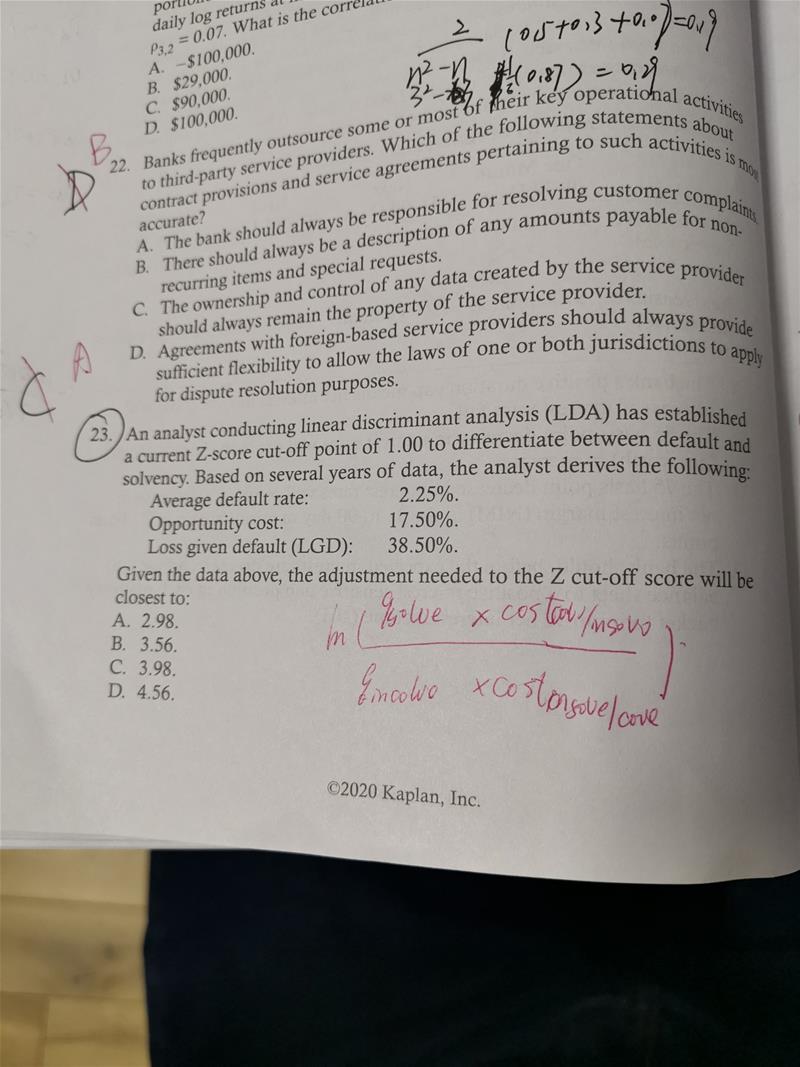 daily log returns at
ρ3,2 = 0.07. What is the
A. –$100,000.
B. $29,000.
C. $90,000.
D. $100,000.
2
(0.5+0.3+0.07)=0.29
n²-n
3²-3
(0.87) = 0.29
B
D
22. Banks frequently outsource some or most of their key operational activities
to third-party service providers. Which of the following statements about
contract provisions and service agreements pertaining to such activities is
accurate?
A. The bank should always be responsible for resolving customer complaints.
B. There should always be a description of any amounts payable for non-
recurring items and special requests.
C. The ownership and control of any data created by the service provider
should always remain the property of the service provider.
D. Agreements with foreign-based service providers should always provide
sufficient flexibility to allow the laws of one or both jurisdictions to apply
for dispute resolution purposes.
A
C
23. An analyst conducting linear discriminant analysis (LDA) has established
a current Z-score cut-off point of 1.00 to differentiate between default and
solvency. Based on several years of data, the analyst derives the following:
Average default rate: 2.25%.
Opportunity cost: 17.50%.
Loss given default (LGD): 38.50%.
Given the data above, the adjustment needed to the Z cut-off score will be
closest to:
A. 2.98.
B. 3.56.
C. 3.98.
D. 4.56.
ln (
qsolve x cost
qinsolve x cost
)
©2020 Kaplan, Inc.